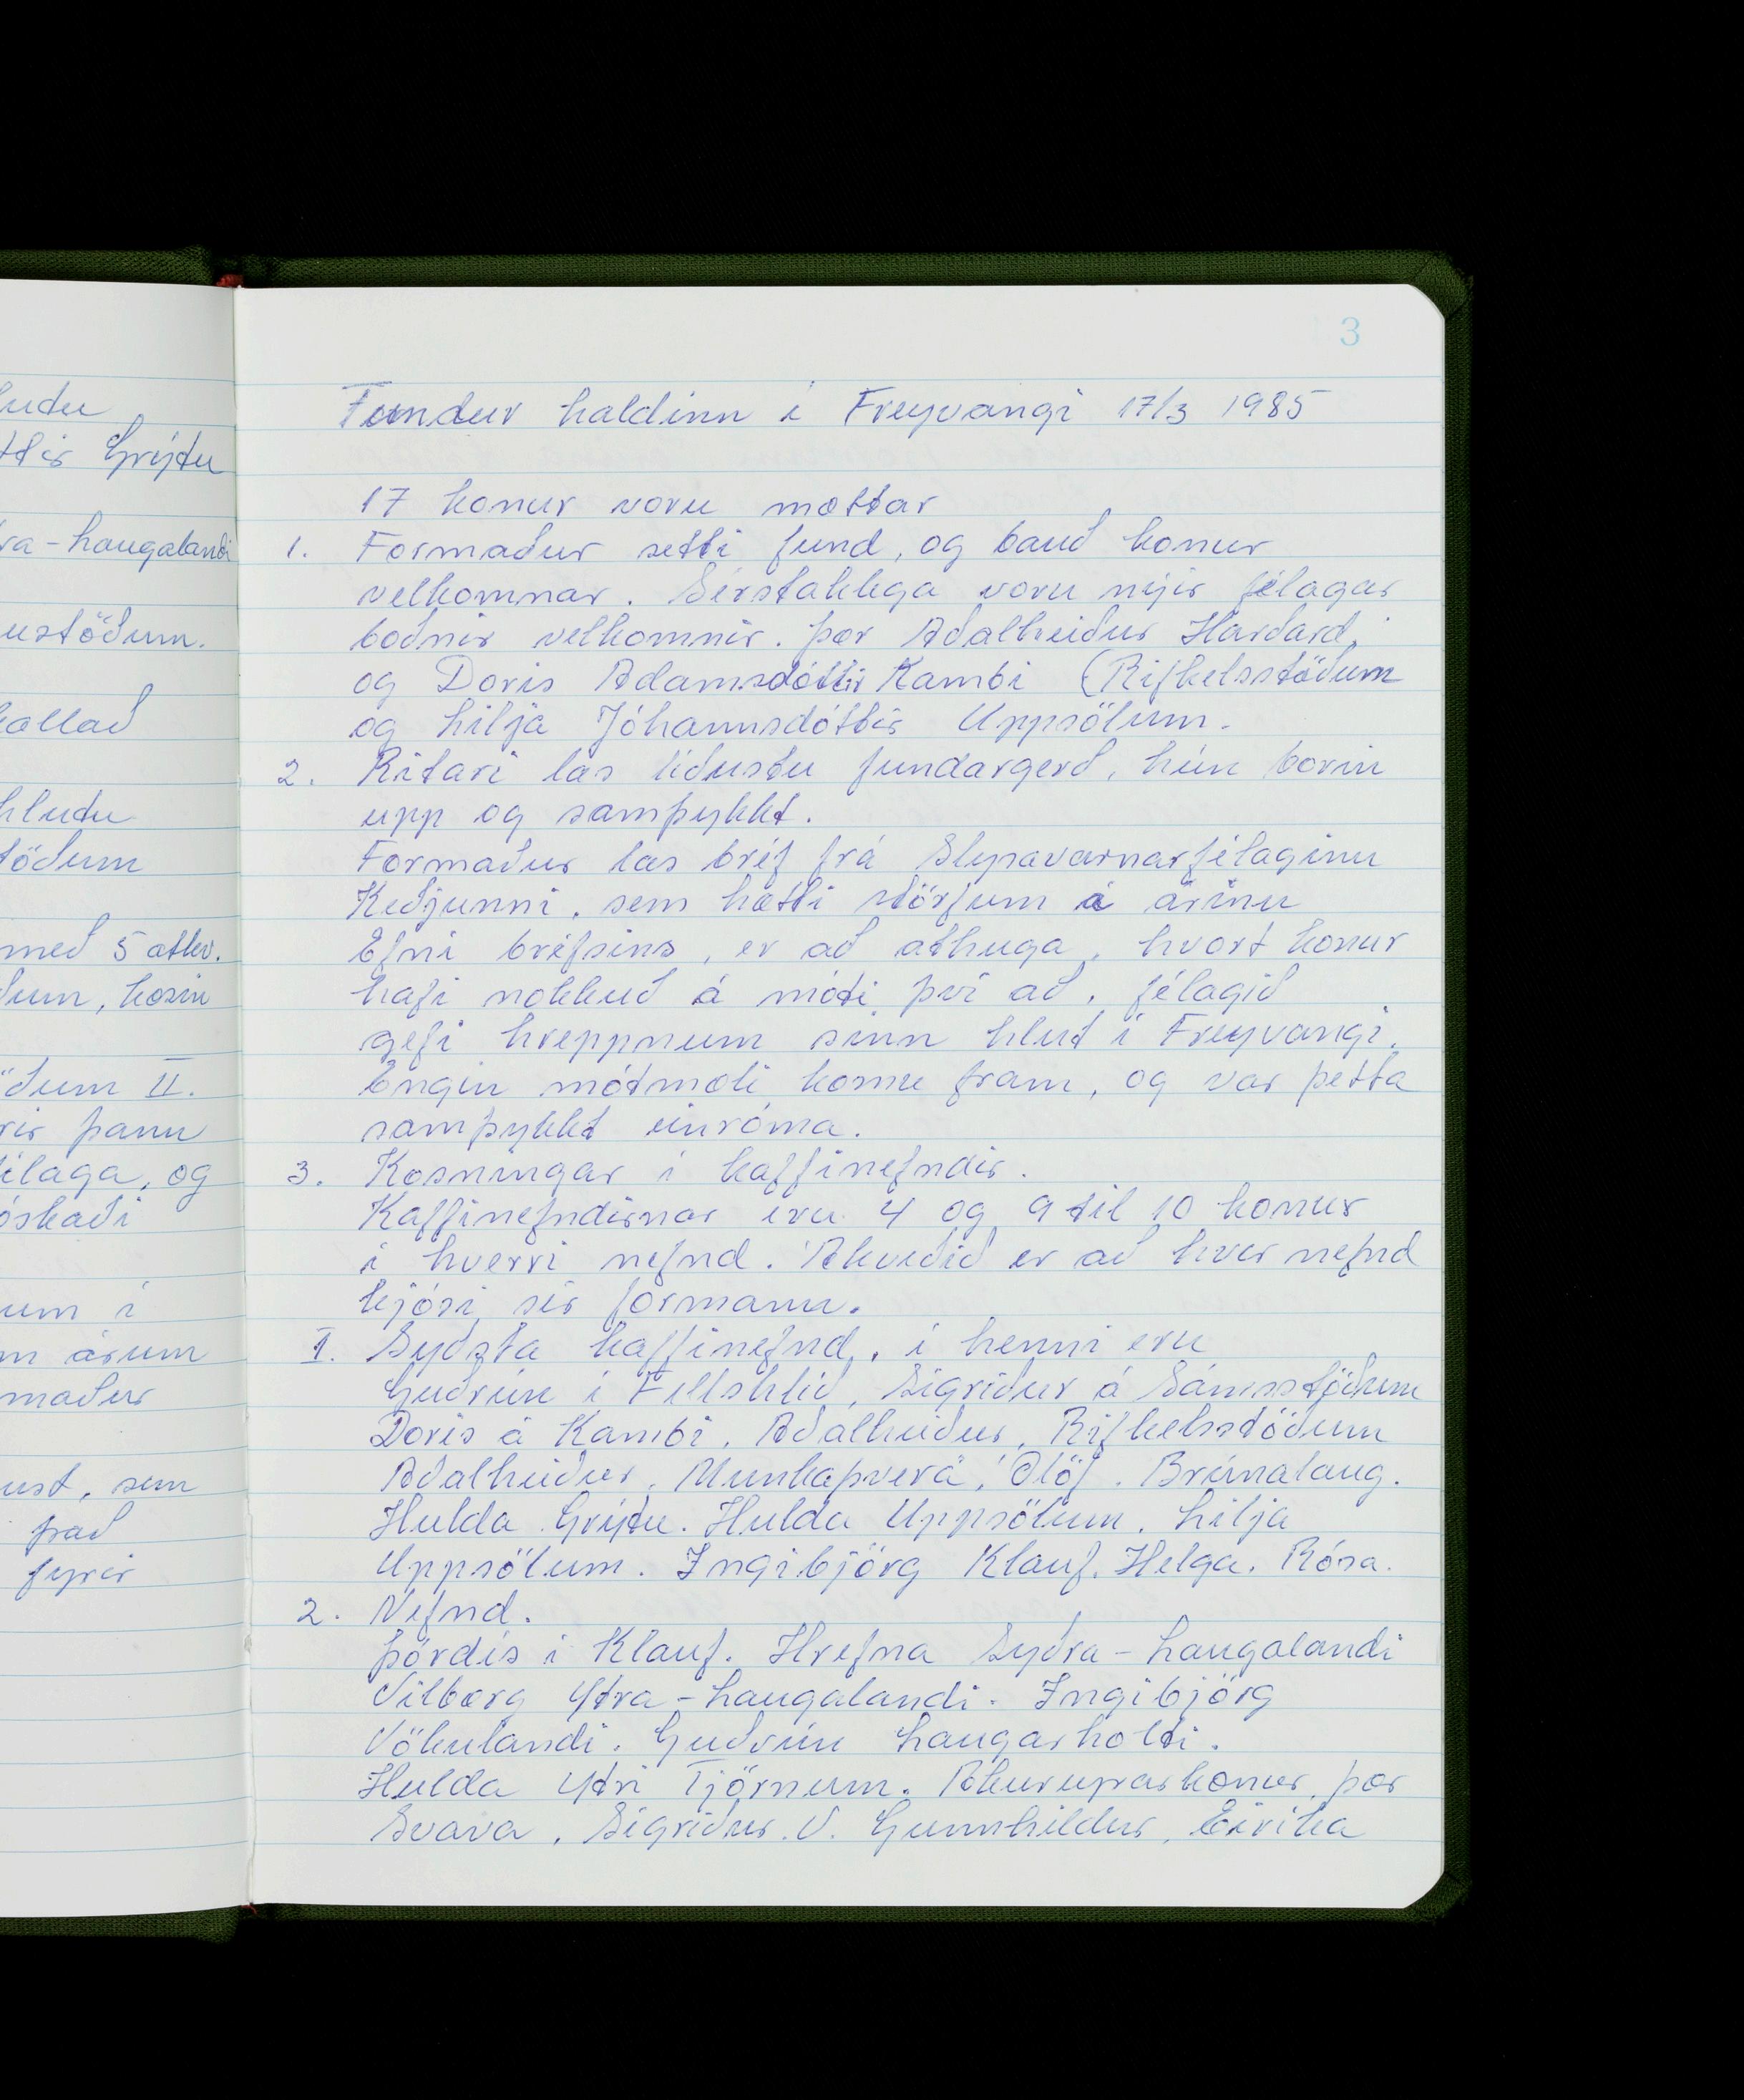 ludu
ttir Grýtu
ra-Laugalandi
ustöðum.
kallað
hludu
töðum
með 5 atkv.
ðum, kosin
öðum II.
rir þann
élaga, og
óskaði
um í
m árum
maður
ust, sem
það
fyrir
3
Fundur haldinn í Freyvangi 17/3 1985
17 konur voru mættar
1. Formaður setti fund, og bauð konur
velkomnar. Sérstaklega voru nýir félagar
boðnir velkomnir. Þær Aðalheiður Harðard.
og Doris Adamsdóttir Kambi (Rifkelsstöðum
og Lilja Jóhannsdóttir Uppsölum.
2. Ritari las síðustu fundargerð, hún borin
upp og samþykkt.
Formaður las bréf frá Slysavarnarfélaginu
Keðjunni, sem hætti störfum á árinu
Efni bréfsins, er að athuga, hvort konur
hafi nokkuð á móti því að, félagið
gefi hreppnum sinn hlut í Freyvangi.
Engin mótmæli komu fram, og var þetta
samþykkt einróma.
3. Kosningar í kaffinefndir.
Kaffinefndirnar eru 4 og 9 til 10 konur
í hverri nefnd. Ákveðið er að hver nefnd
kjósi sér formann.
I. Syðsta kaffinefnd, í henni eru
Guðrún í Fellshlíð, Sigríður á Sámsstöðum
Doris á Kambi. Aðalheiður, Rifkelsstöðum
Aðalheiður, Munkaþverá, Ólöf. Brúnalaug.
Hulda Grýtu. Hulda Uppsölum. Lilja
Uppsölum. Ingibjörg Klauf. Helga. Rósa.
2. Nefnd.
Þórdís í Klauf. Hrefna Syðra-Laugalandi
Vilborg Ytra-Laugalandi. Ingibjörg
Vökulandi. Guðrún Laugarholti.
Hulda Ytri Tjörnum. Akureyrarkonur, þær
Svava, Sigríður. V. Gunnhildur, Eiríka